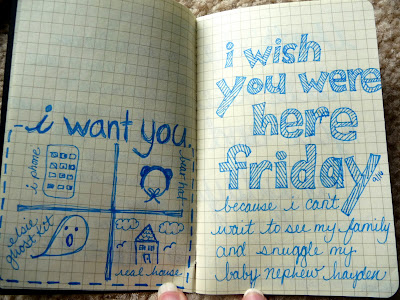 i want you
iphone
bearhat
elsie
ghost kit
real house
i wish
you were
here
friday
9/16
because i can't
wait to see my family
and snuggle my
baby nephew hayden